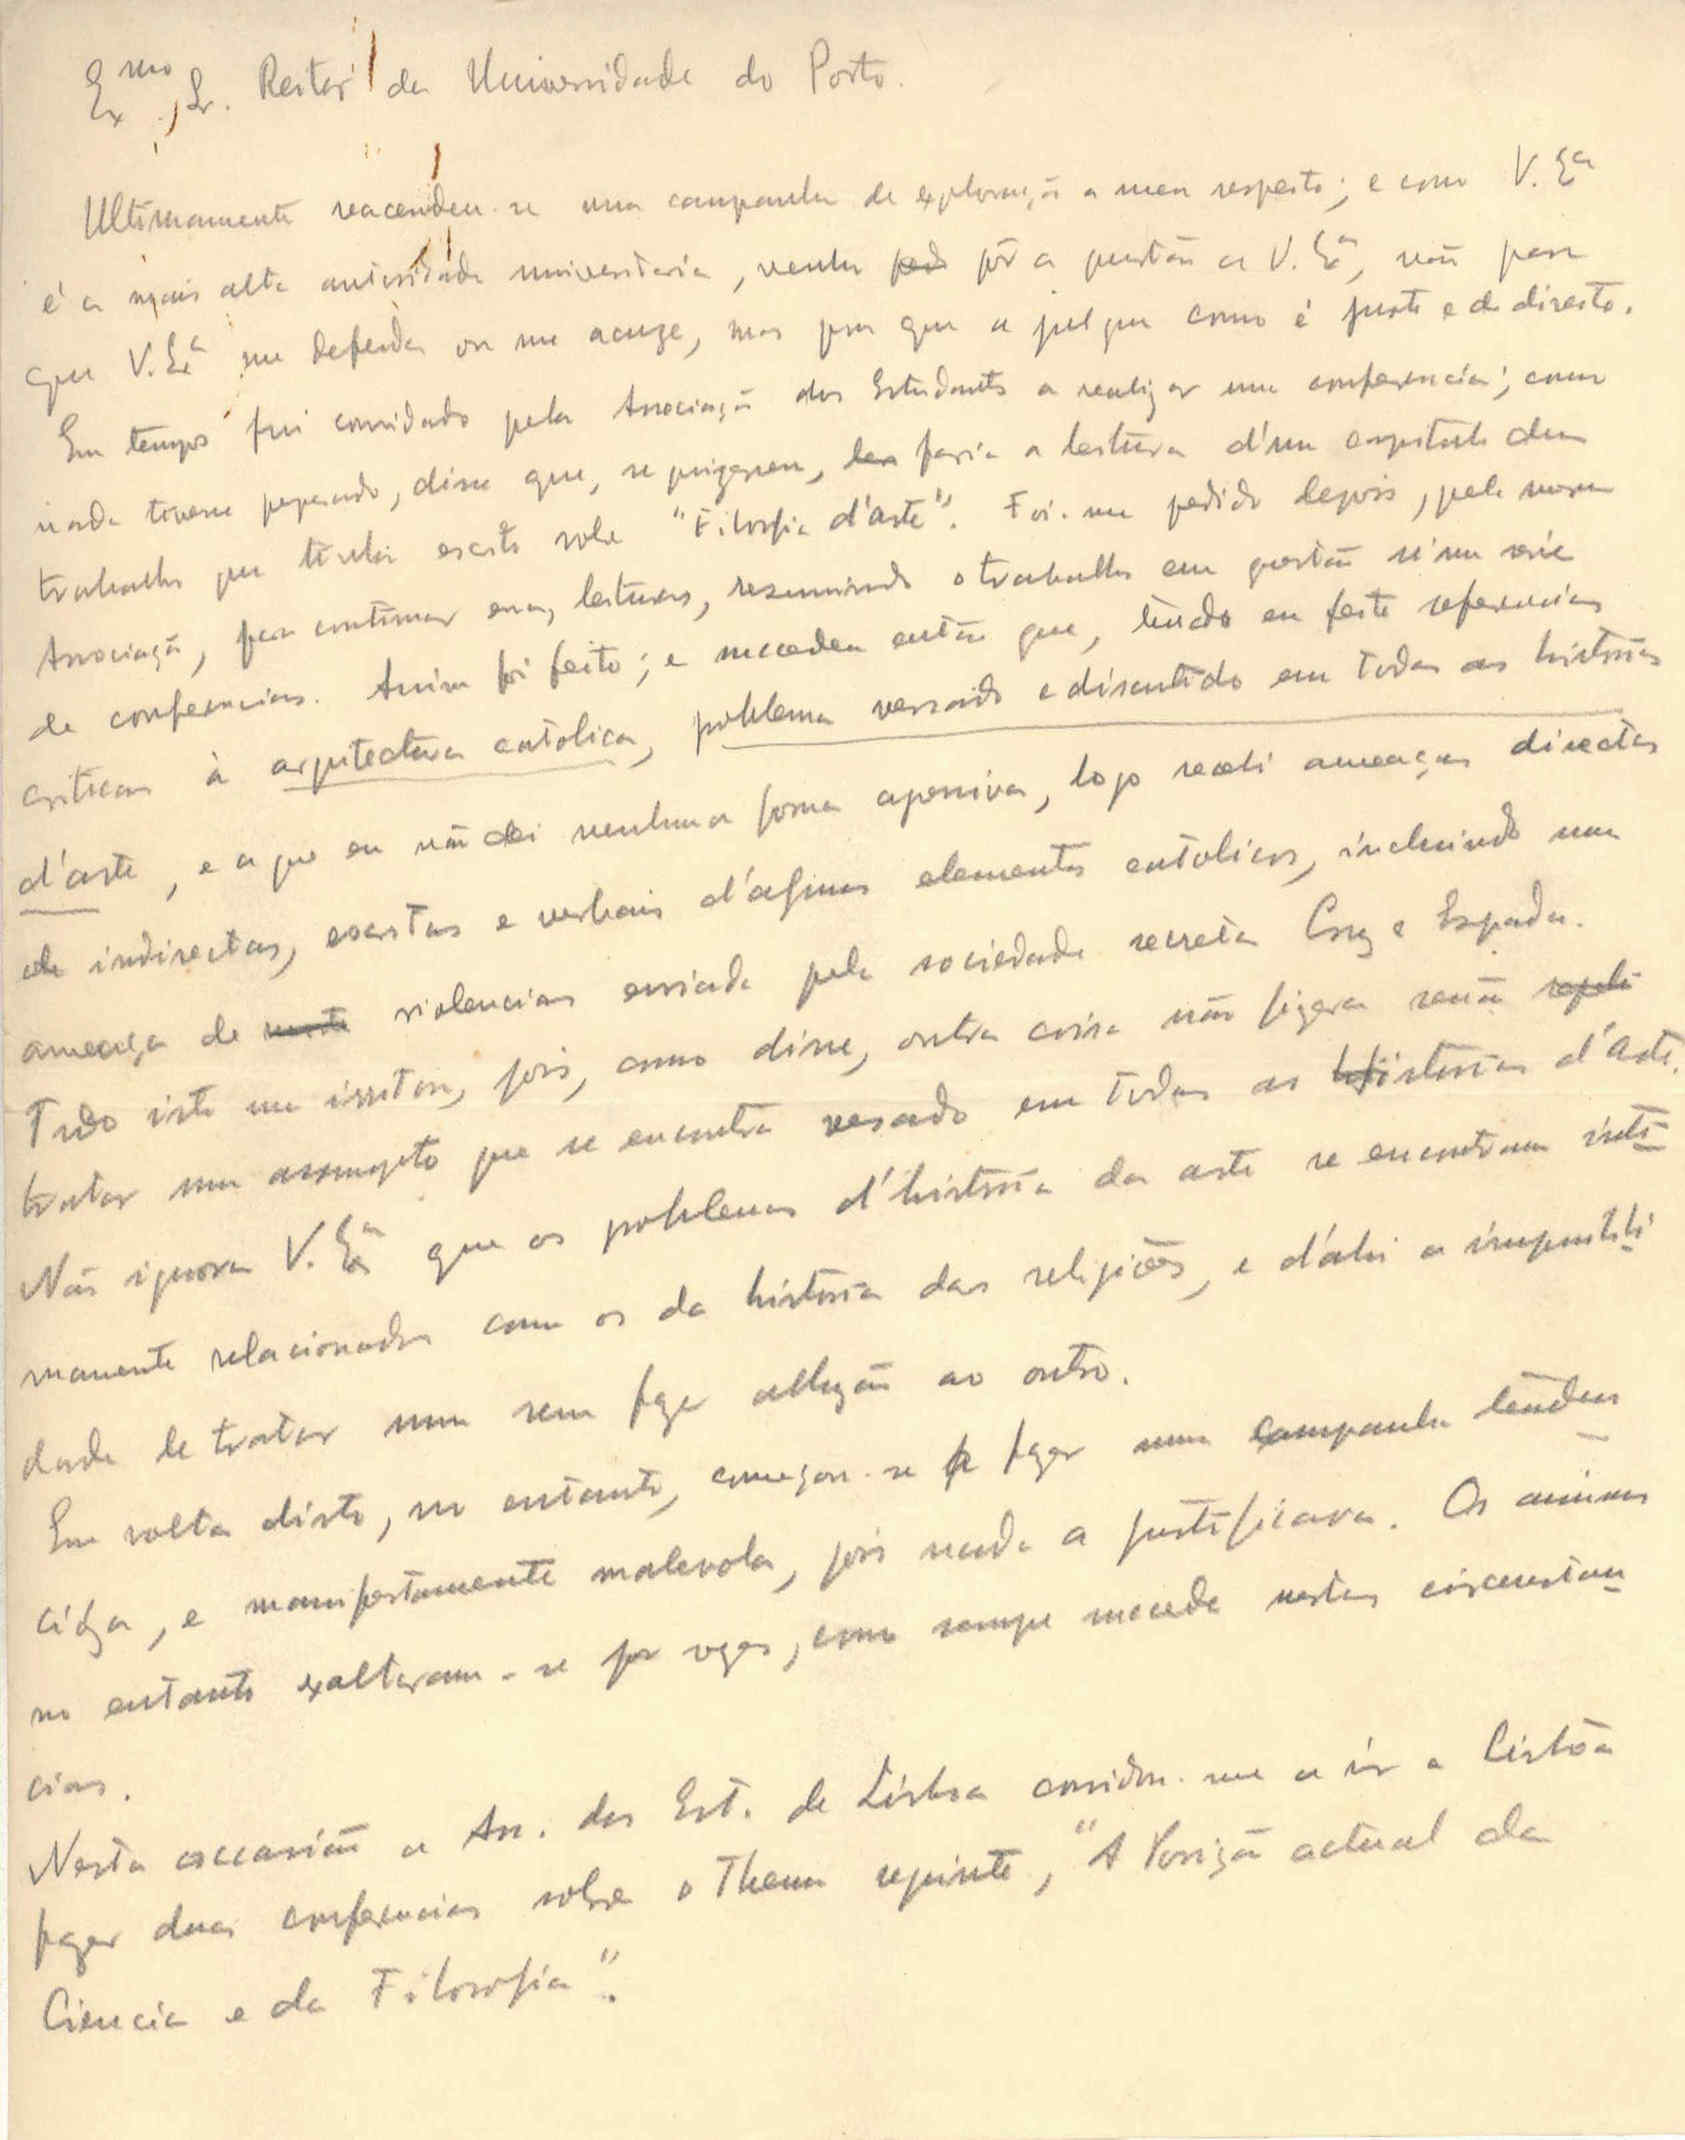 Exmo Sr. Reitor da Universidade do Porto.
Ultimamente reacendeu-se uma campanha de exploração a meu respeito; e como V. Exa
é a mais alta autoridade universitaria, venho ped pôr a questão a V. Exa, não para
que V. Exa me defenda ou me acuze, mas para que a julgue como é justo e de direito.
Em tempos fui convidado pela Associação dos Estudantes a realizar uma conferencia; como
nada tivesse preparado, disse que, se quizessem, faria a leitura d'um capitulo dum
trabalho que tinha escrito sobre "Filosofia d'arte". Foi-me pedido depois, pela mesma
Associação, para continuar essas leituras, resumindo o trabalho em questão n'uma serie
de conferencias. Assim foi feito; e sucedeu então que, tendo eu feito referencias
criticas à arquitectura catolica, problema versado e discutido em todas as histórias
d'arte, e a que eu não dei nenhuma forma agressiva, logo recebi ameaças directas
de indirectas, escritas e verbais d'alguns elementos catolicos, incluindo uma
ameaça de morte violencias enviada pela sociedade secreta Cruz e Espada.
Tudo isto me irritou, pois, como disse, outra coisa não fizera senão repeti
tratar um assumpto que se encontra versado em todas as Historias d'Arte.
Não ignora V. Exa que os problemas d'história da arte se encontram inti
mamente relacionados com os da história das religiões, e d'ahi a impossibili
dade de tratar um sem fazer alluzão ao outro.
Em volta disto, no entanto, começou-se a fazer uma campanha tenden
cióza, e manifestamente malevola, pois nada a justificava. Os animos
no entanto exaltaram-se por vezes, como sempre sucede nestas circunstan
cias.
Nesta occasião a Ass. dos Est. de Lisboa convidou-me a ir a Lisbôa
fazer duas conferencias sobre o Thema seguinte, "A Posição actual da
Ciencia e da Filosofia".